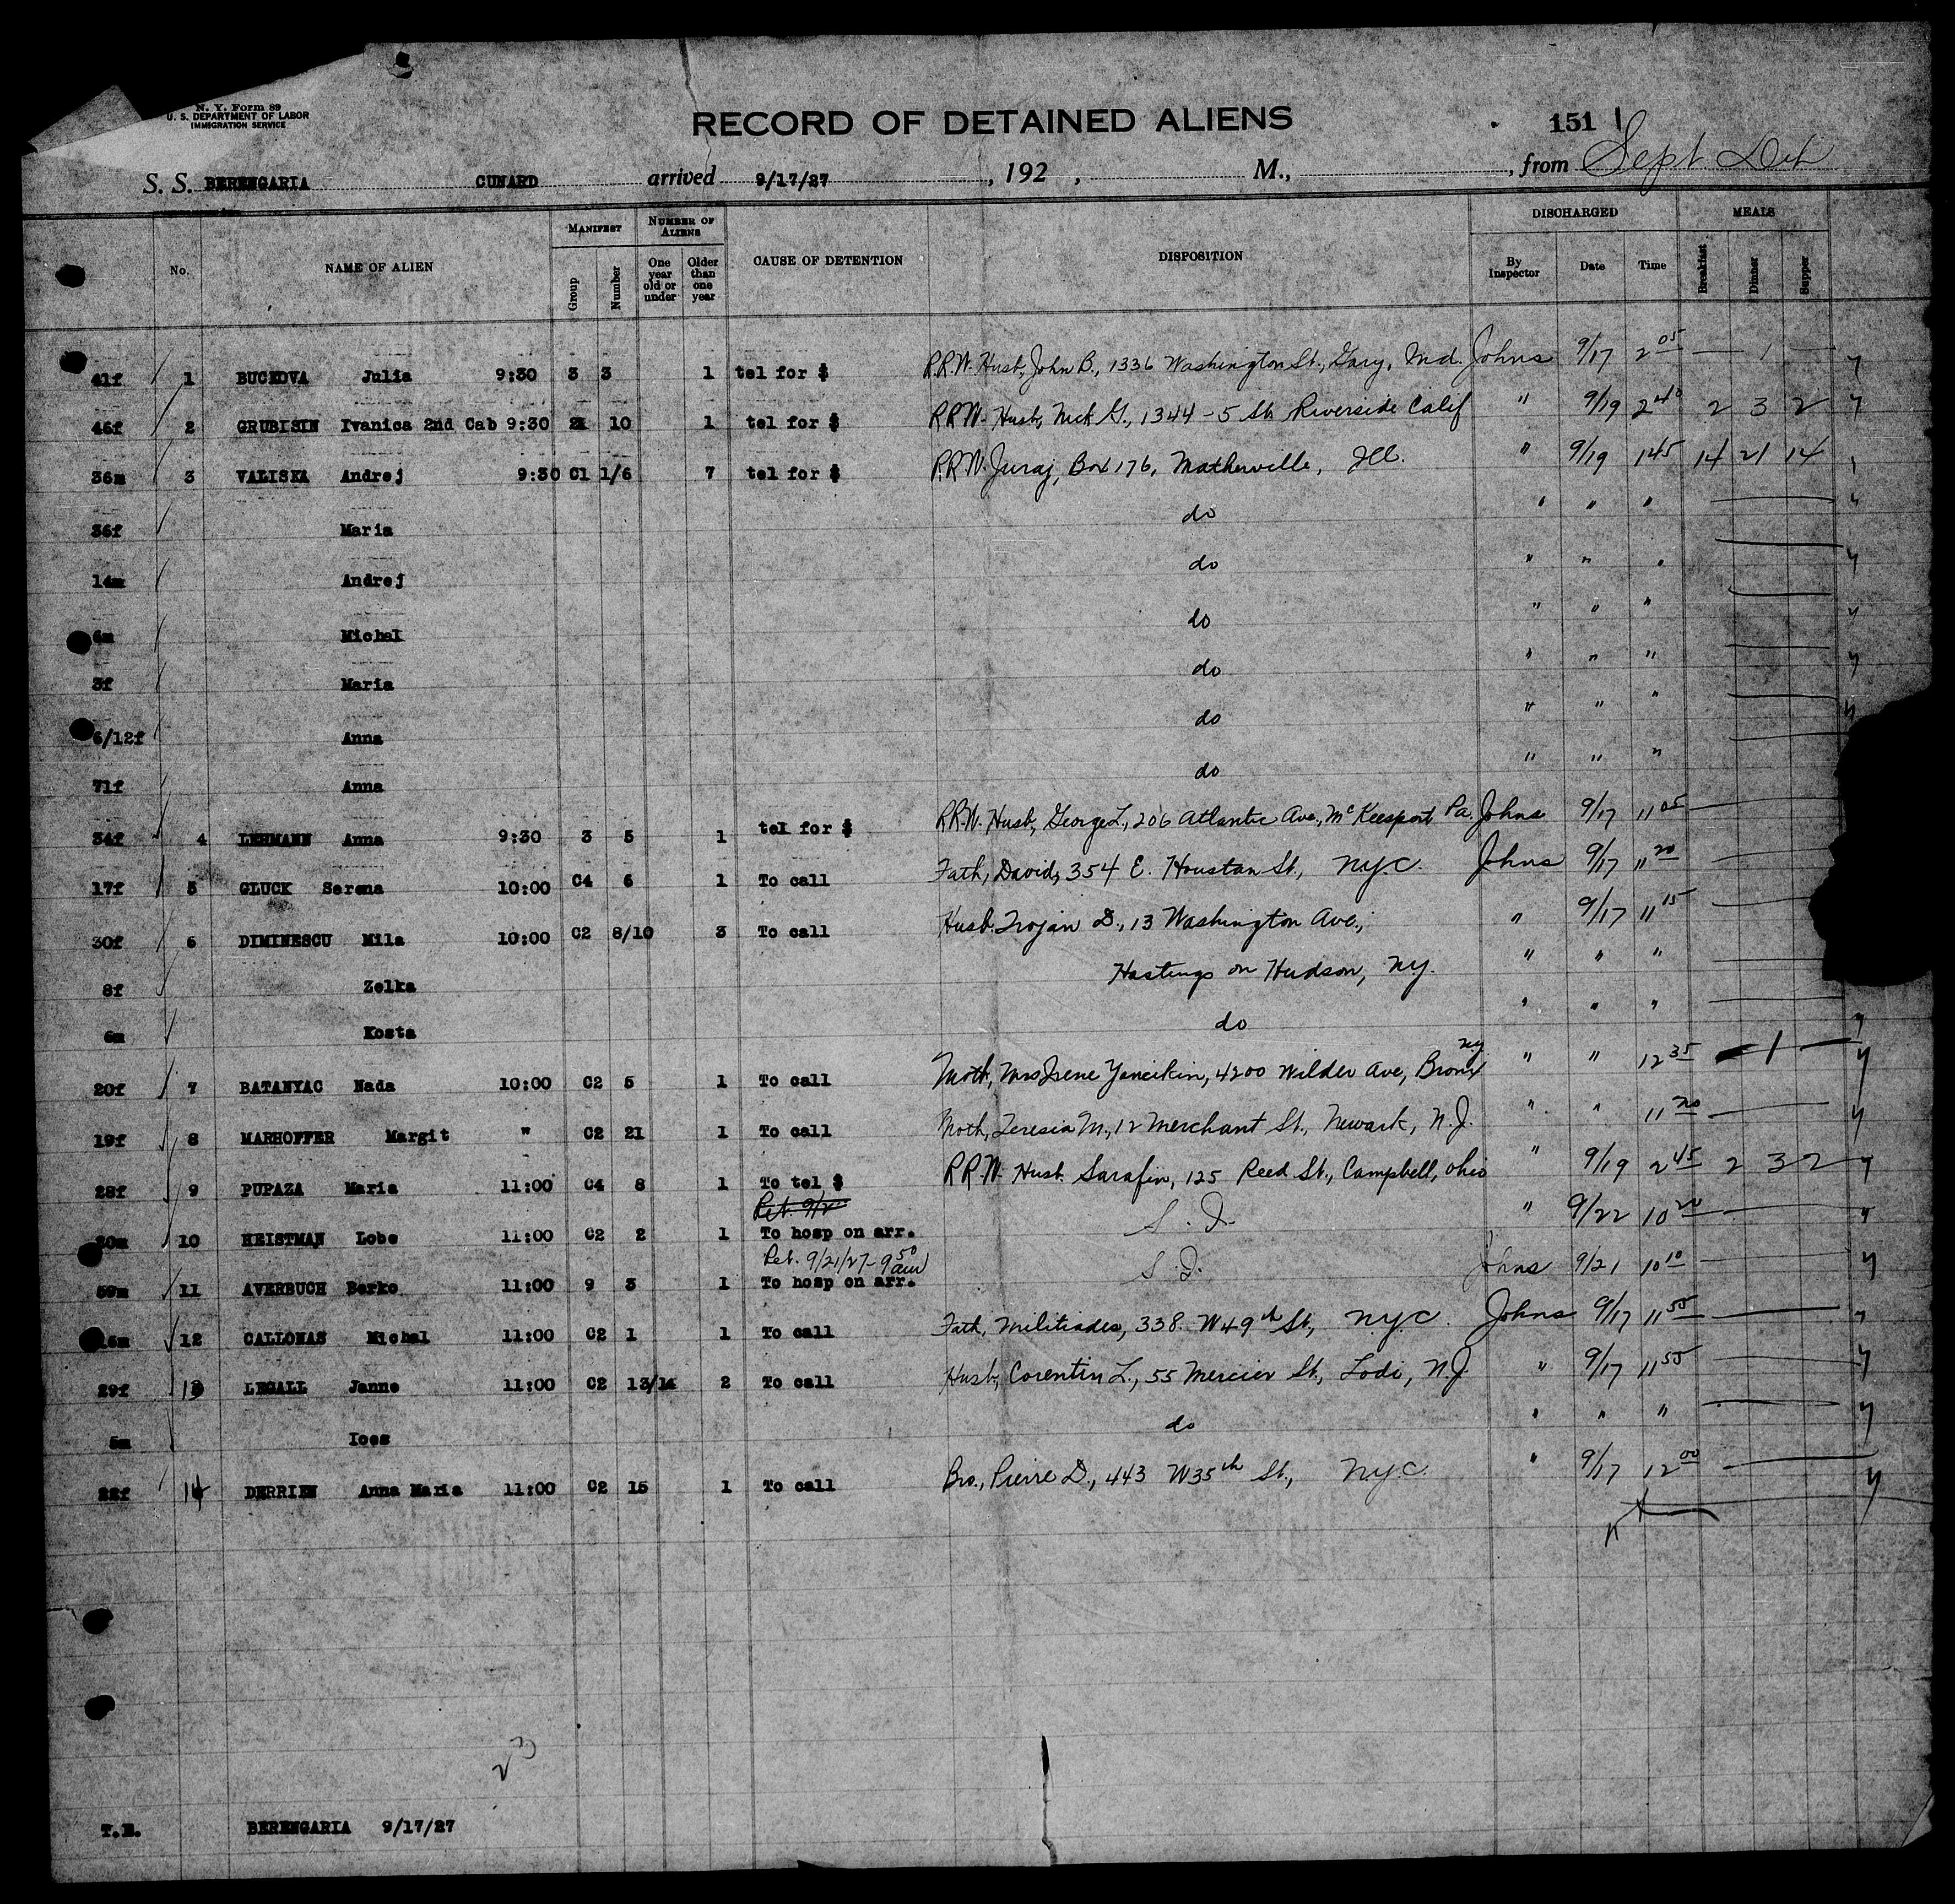 N. Y. Form 89
U. S. DEPARTMENT OF LABOR
IMMIGRATION SERVICE
RECORD OF DETAINED ALIENS
151
S. S. BERENGARIA CUNARD arrived 9/17/27, 192 , M., , from Sept Det
No. NAME OF ALIEN MANIFEST Group Number NUMBER OF ALIENS One year old or under Older than one year CAUSE OF DETENTION DISPOSITION DISCHARGED By Inspector Date Time MEALS Breakfast Dinner Supper
41f 1 BUCKOVA Julia 9:30 3 3 1 tel for $ R.R.W. Husb, John B., 1336 Washington St., Gary, Ind. Johns 9/17 2 05 — 1 —
46f 2 GRUBISIN Ivanica 2nd Cab 9:30 10 1 tel for $ RRW. Husb, Nick G., 1344-5 St. Riverside Calif " 9/19 2 40 2 3 2
36m 3 VALISKA Andrej 9:30 C1 1/6 7 tel for $ R.R.W. Juraj, Box 176, Matherville, Ill. " 9/19 1 45 14 21 14
36f Maria do " " "
14m Andrej do " " "
6m Michal do " " "
3f Maria do " " "
6/12f Anna do " " "
71f Anna do " " "
34f 4 LEHMANN Anna 9:30 3 5 1 tel for $ R.R.W. Husb, George L., 206 Atlantic Ave., McKeesport Pa. Johns 9/17 11 05
17f 5 GLUCK Serena 10:00 C4 6 1 To call Fath, David, 354 E. Houston St., N.Y.C. Johns 9/17 11 20
30f 6 DIMINESCU Mila 10:00 C2 8/10 3 To call Husb. Trojan D., 13 Washington Ave., " 9/17 11 15
8f Zelka Hastings on Hudson, N.Y. " " "
6m Kosta do " " "
20f 7 BATANYAC Nada 10:00 C2 5 1 To call Moth, Mrs Irene Yancikin, 4200 Wilder Ave, Bronx N.Y. " " 12 35 — 1 —
19f 8 MARHOFFER Margit " C2 21 1 To call Moth, Teresia M., 12 Merchant St., Newark, N.J. " " 11 20
28f 9 PUPAZA Maria 11:00 C4 8 1 To tel $ R.R.W. Husb. Sarafin, 125 Reed St., Campbell, Ohio " 9/19 2 45 2 3 2
Ret. 9/2
30m 10 HEISTMAN Lobe 11:00 C2 2 1 To hosp on arr. S.I. " 9/22 10 20
Ret. 9/21/27-9 50 am
59m 11 AVERBUCH Berko 11:00 9 3 1 To hosp on arr. S.I. Johns 9/21 10 10
16m 12 CALLONAS Michal 11:00 C2 1 1 To call Fath, Militiades, 338 W 49th St., N.Y.C. Johns 9/17 11 55
29f 13 LEGALL Janne 11:00 C2 13/14 2 To call Husb, Corentin L., 55 Mercier St., Lodi, N.J. " 9/17 11 55
5m Ioes do " " "
22f 14 DERRIEN Anna Maria 11:00 C2 15 1 To call Bro., Pierre D., 443 W 35th St., N.Y.C. " 9/17 12 00
23
T.E. BERENGARIA 9/17/27